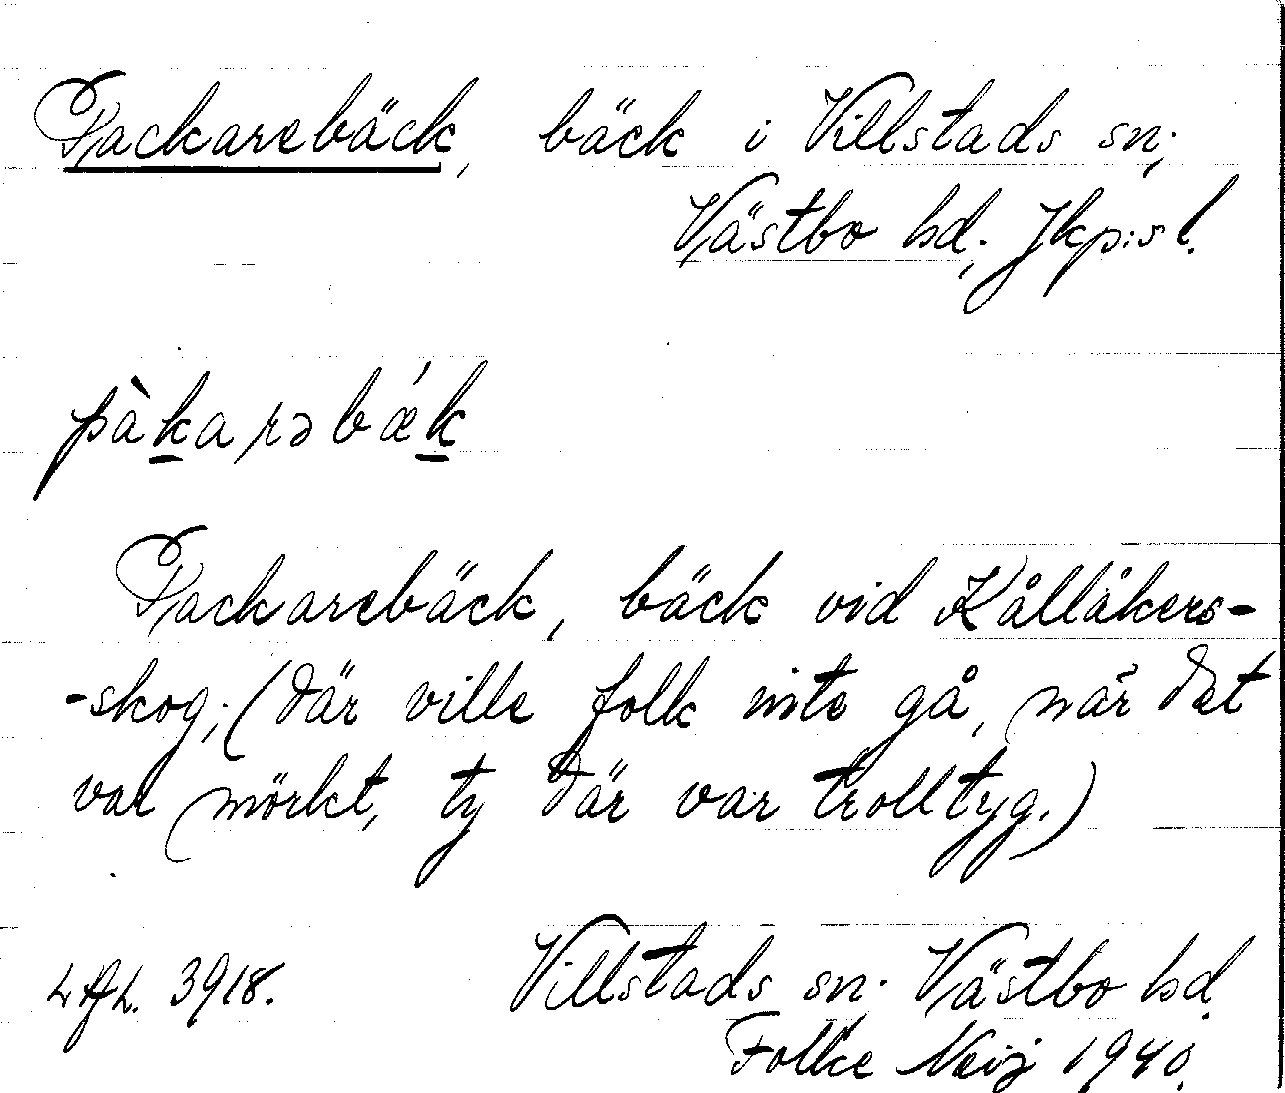 Packarebäck, bäck i Villstads sn,
Västbo hd, Jkp:s l.
pàkarəbǽk
Packarebäck, bäck vid Kållåkers-
-skog; (där ville folk inte gå, när det
var mörkt, ty där var trolltyg.)
3918. Villstads sn. Västbo hd.
Folke Neij 1940.